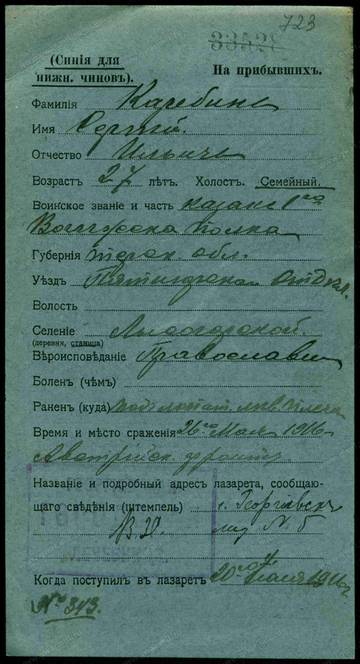 723
33528
(Синія для
нижн. чиновъ).
На прибывшихъ.
Фамилія
Имя Сергѣй.
Отчество Ильичъ
Возрастъ 27 лѣтъ. Холост. Семейный.
Воинское званіе и часть казакъ 1го
Волгскаго полка
Губернія терск. обл.
Уѣздъ Пятигорск. Отдѣл.
Волость
Селеніе Лысогорской.
(деревня, станица)
Вѣроисповѣданіе Православн
Боленъ (чѣмъ)
Раненъ (куда) лопат. лѣв. плеча
Время и мѣсто сраженія 26го Мая 1916
Австрійск. фронтъ
Названіе и подробный адресъ лазарета, сообщаю-
щаго свѣдѣнія (штемпель) г. Георгіевск
№ 6
Когда поступилъ въ лазаретъ 20го 1916г
№ 343.